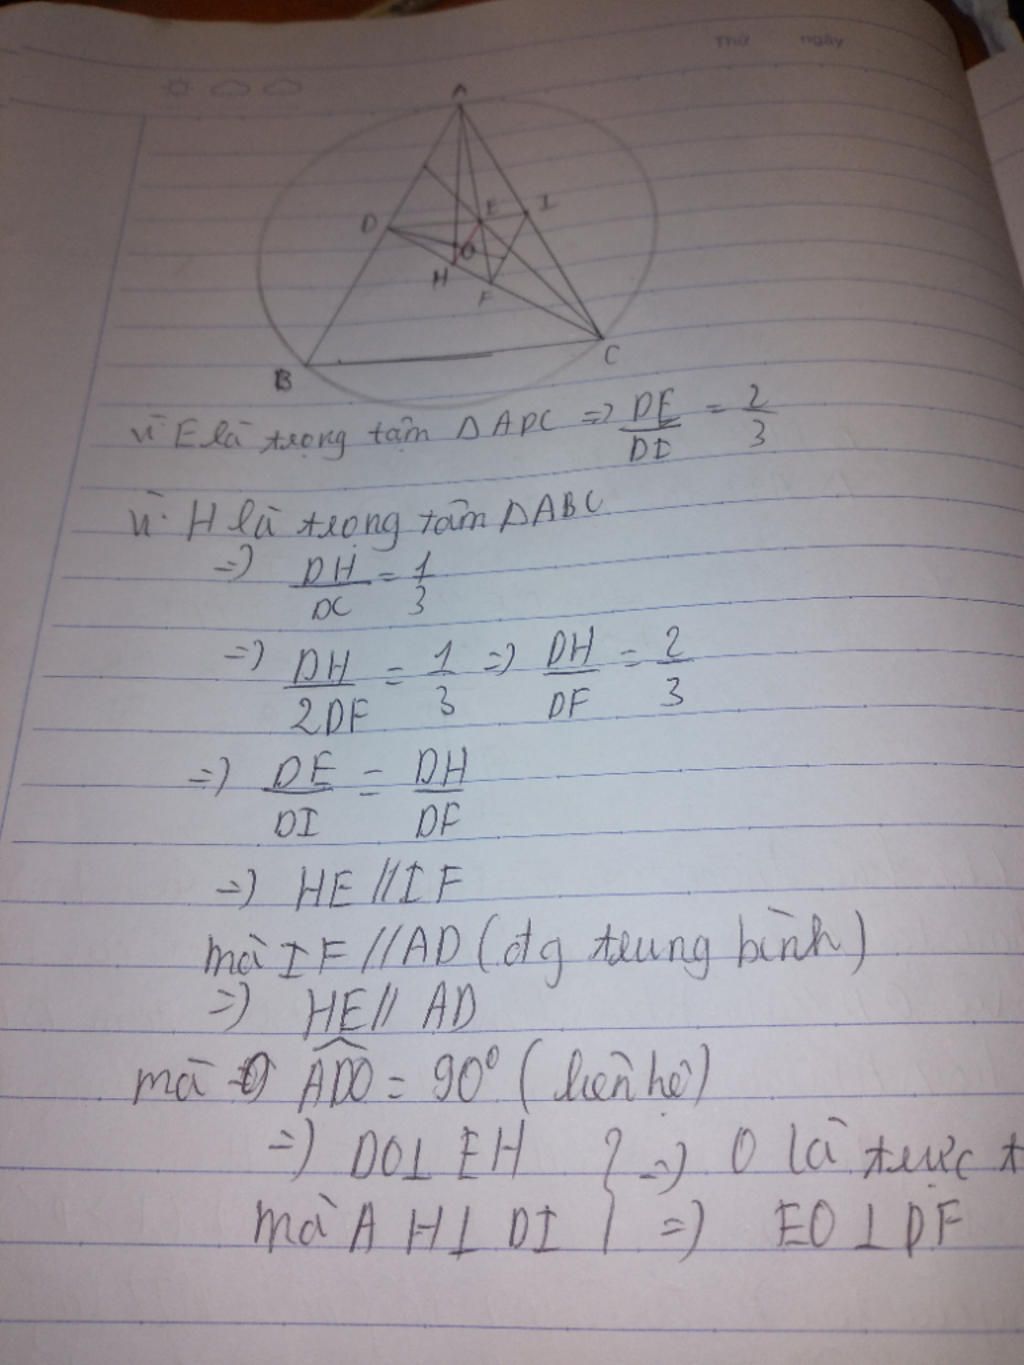 Thứ ngày
A
D E I
O
H
F
B C
vì E là trọng tâm ΔADC => DE/DI = 2/3
vì H là trọng tâm ΔABC
=> DH/DC = 1/3
=> DH/2DF = 1/3 => DH/DF = 2/3
=> DE/DI = DH/DF
=> HE // IF
mà IF // AD (đg trung bình)
=> HE // AD
mà ADO = 90° (liên hệ)
=> DO ⊥ EH } => O là trực t
mà AH ⊥ DI } => EO ⊥ DF